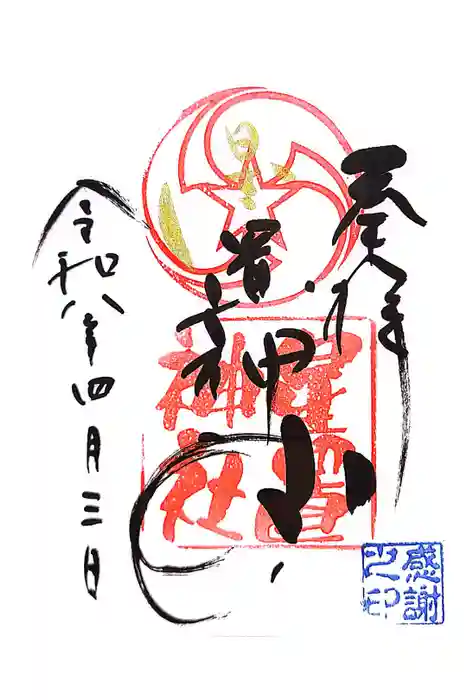 奉拝
置神社
星置
神社
令和八年四月三日
感謝
之印